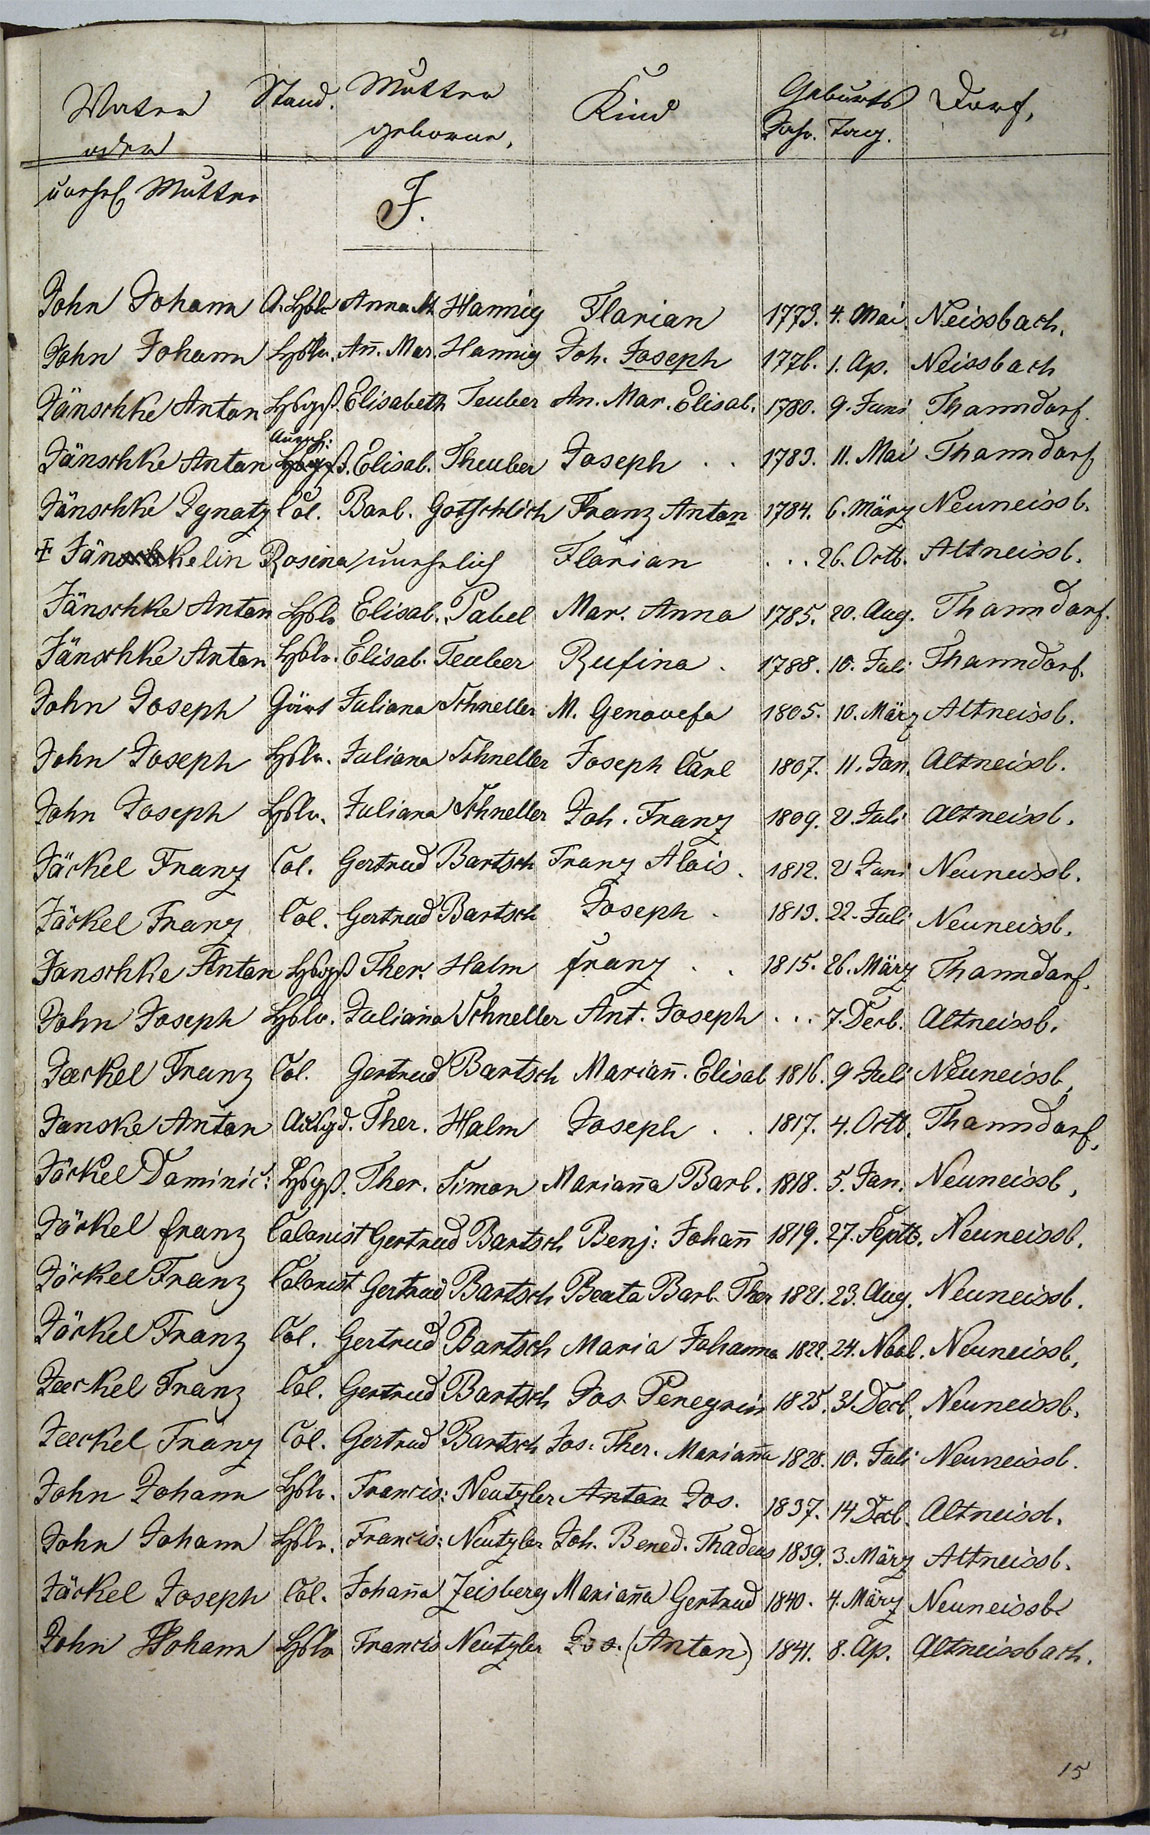 Vater Stand. Mutter Kind Geburts Dorf,
oder geborne, Jahr. Tag.
unehel Mutter
J.
John Johann A. Hslr Anna M. Hannig Florian 1773. 4. Mai. Neissbach.
John Johann Hslr. An̄. Mar. Hannig Joh. Joseph 1776. 1. Ap. Neissbach
Jänschke Anton Hsgß Elisabeth Teuber An. Mar. Elisab. 1780. 9. Juni Thanndorf.
Jänschke Anton Elisab. Theuber Joseph . . 1783. 11. Mai Thanndorf
Jänschke Ignatz Col. Barb. Gotschlich Franz Anton 1784. 6. März Neuneissb.
Jänschkelin Rosina unehrlich Florian . . . 26. Octb. Altneissb.
Jänschke Anton Hslr Elisab. Pabel Mar. Anna 1785. 20. Aug. Thanndorf.
Jänschke Anton Hslr. Elisab. Teuber Rufina . 1788. 10. Juli Thanndorf.
John Joseph Gärt Juliana Schneller M. Genovefa 1805. 10. März Altneissb.
John Joseph Hslr. Juliana Schneller Joseph Carl 1807. 11. Jan. Altneissb.
John Joseph Hslr. Juliana Schneller Joh. Franz 1809. 21 Juli Altneissb.
Jäckel Franz Col. Gertrud Bartsch Franz Alois. 1812. 21 Juni Neuneissb.
Jäckel Franz Col. Gertrud Bartsch Joseph . 1813. 22. Juli Neuneissb.
Janschke Anton Hsgß Ther. Halm Franz . . 1815. 26. März Thanndorf.
John Joseph Hslr. Juliana Schneller Ant. Joseph . . . 7. Decb. Altneissb.
Jaeckel Franz Col. Gertrud Bartsch Marian̄. Elisab 1816. 9 Juli Neuneissb.
Janske Anton Ther. Halm Joseph . . 1817. 4. Octb. Thanndorf.
Jäckel Dominic: Hsgß. Ther. Simon Marian̄a Barb. 1818. 5. Jan. Neuneissb.
Jäckel Franz Colonist Gertrud Bartsch Benj: Johan̄ 1819. 27. Septb. Neuneissb.
Jäckel Franz Colonist Gertrud Bartsch Beata Barb. Ther 1821. 23. Aug. Neuneissb.
Jäckel Franz Col. Gertrud Bartsch Maria Johanna 1822. 24. Novb. Neuneissb.
Jaeckel Franz Col. Gertrud Bartsch Jos Peregrin 1825. 31 Decb. Neuneissb.
Jaeckel Franz Col. Gertrud Bartsch Jos: Ther. Marian̄a 1828. 10. Juli Neuneissb.
John Johann Hslr. Francis: Neutzler Anton Jos. 1837. 14 Decb. Altneissb.
John Johann Hslr. Francis: Neutzler Joh. Bened. Thadeus 1839. 3. März Altneissb.
Jäckel Joseph Col. Johan̄a Zeisberg Marian̄a Gertrud 1840. 4. März Neuneissb
John Johann Hslr Francis Neutzler Jos. (Anton) 1841. 8. Ap. Altneissbach.
15